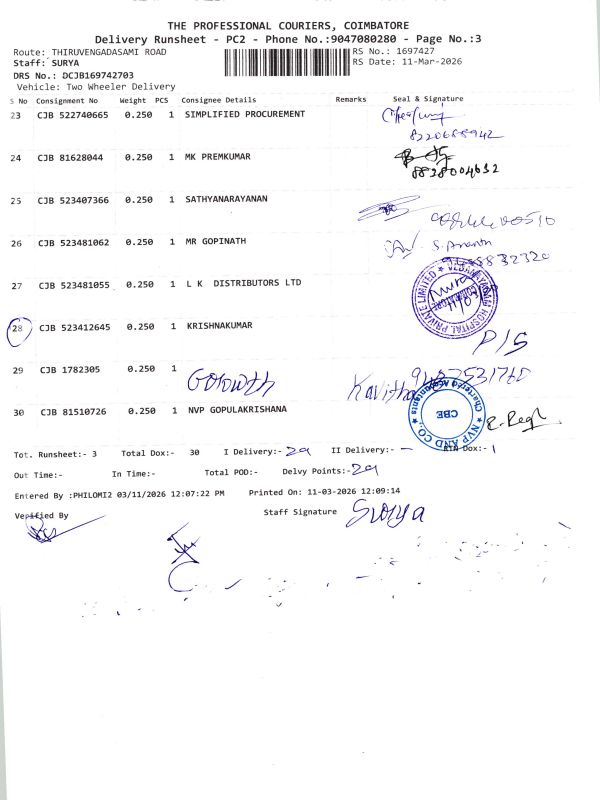 THE PROFESSIONAL COURIERS, COIMBATORE
Delivery Runsheet - PC2 - Phone No.:9047080280 - Page No.:3
Route: THIRUVENGADASAMI ROAD RS No.: 1697427
Staff: SURYA RS Date: 11-Mar-2026
DRS No.: DCJB169742703
Vehicle: Two Wheeler Delivery
S No Consignment No Weight PCS Consignee Details Remarks Seal & Signature
23 CJB 522740665 0.250 1 SIMPLIFIED PROCUREMENT
24 CJB 81628044 0.250 1 MK PREMKUMAR
8828004632
25 CJB 523407366 0.250 1 SATHYANARAYANAN
26 CJB 523481062 0.250 1 MR GOPINATH
S. Ananth
27 CJB 523481055 0.250 1 L K DISTRIBUTORS LTD
28 CJB 523412645 0.250 1 KRISHNAKUMAR
P/S
29 CJB 1782305 0.250 1
Growth Kavitha
30 CJB 81510726 0.250 1 NVP GOPULAKRISHANA
NVP AND CO. Chartered Accountants CBE
Tot. Runsheet:- 3 Total Dox:- 30 I Delivery:- 29 II Delivery:- - RTN Dox:- 1
Out Time:- In Time:- Total POD:- Delvy Points:- 29
Entered By :PHILOMI2 03/11/2026 12:07:22 PM Printed On: 11-03-2026 12:09:14
Verified By Staff Signature Surya